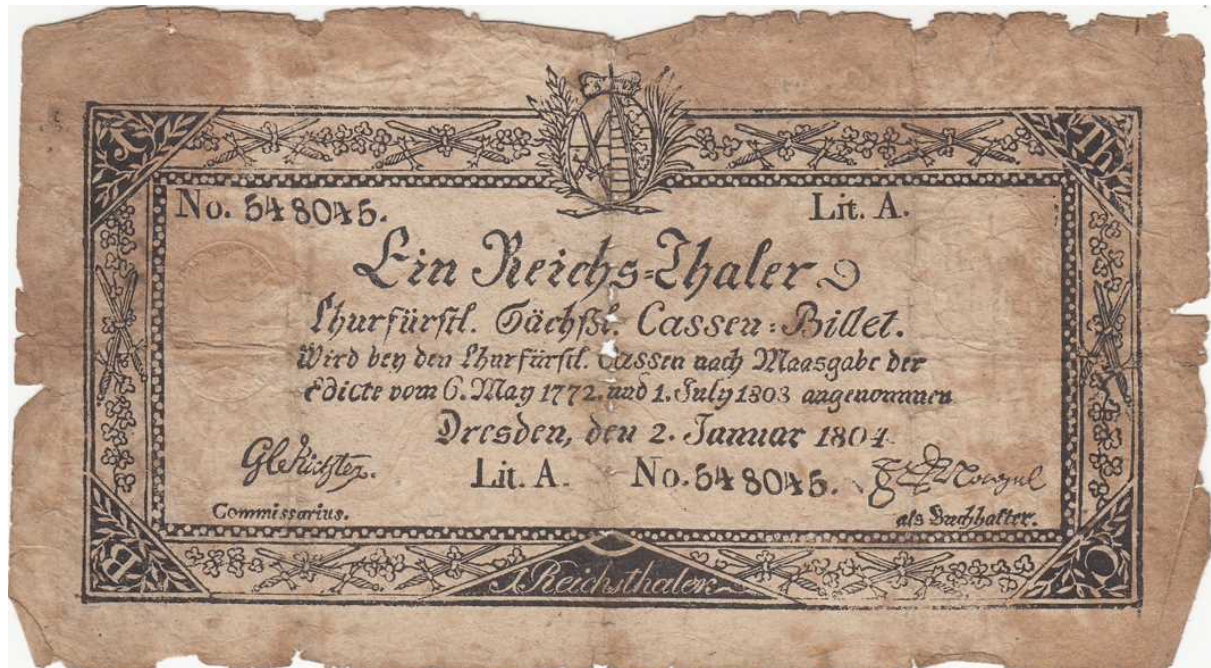 1 Th
No. 548045. Lit. A.
Ein Reichs=Thaler
Churfürstl. Sächßl. Cassen=Billet.
Wird bey den Churfürstl. Cassen nach Maasgabe der
Edicte vom 6. May 1772. und 1. July 1803 angenommen
Dresden, den 2. Januar 1804.
Lit. A. No. 548045.
Commissarius. als Buchhalter.
B 1 Reichsthaler C